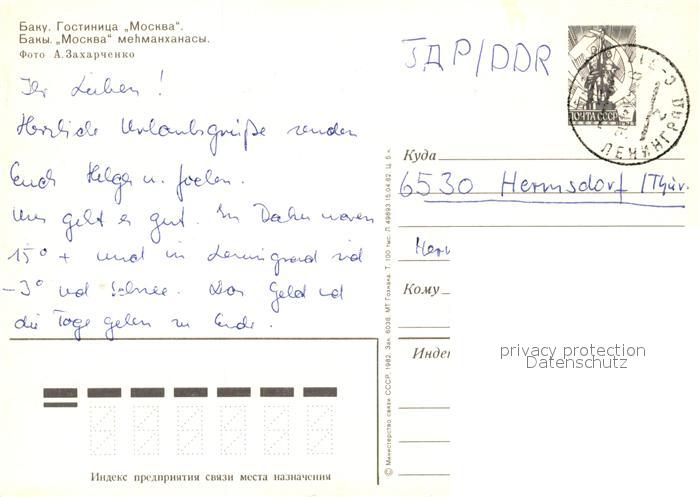 Баку. Гостиница „Москва“.
Бакы. „Москва“ меһманханасы.
Фото А. Захарченко
Ihr Lieben!
Herzliche Urlaubsgrüße senden
Euch Helga u.
Uns geht es gut. In Baku waren
15° + und in Leningrad sind
-3° und Schnee. Das Geld und
die Tage gehen zu Ende.
ГДР/DDR
ПОЧТА СССР
ЛЕНИНГРАД
Куда
6530 Hermsdorf /Thür.
Кому
Индек
privacy protection
Datenschutz
Индекс предприятия связи места назначения
© Министерство связи СССР, 1982. Зак. 6038. МТ Гознака. Т. 100 тыс. Л 49893.15.04.82. Ц. 5 к.